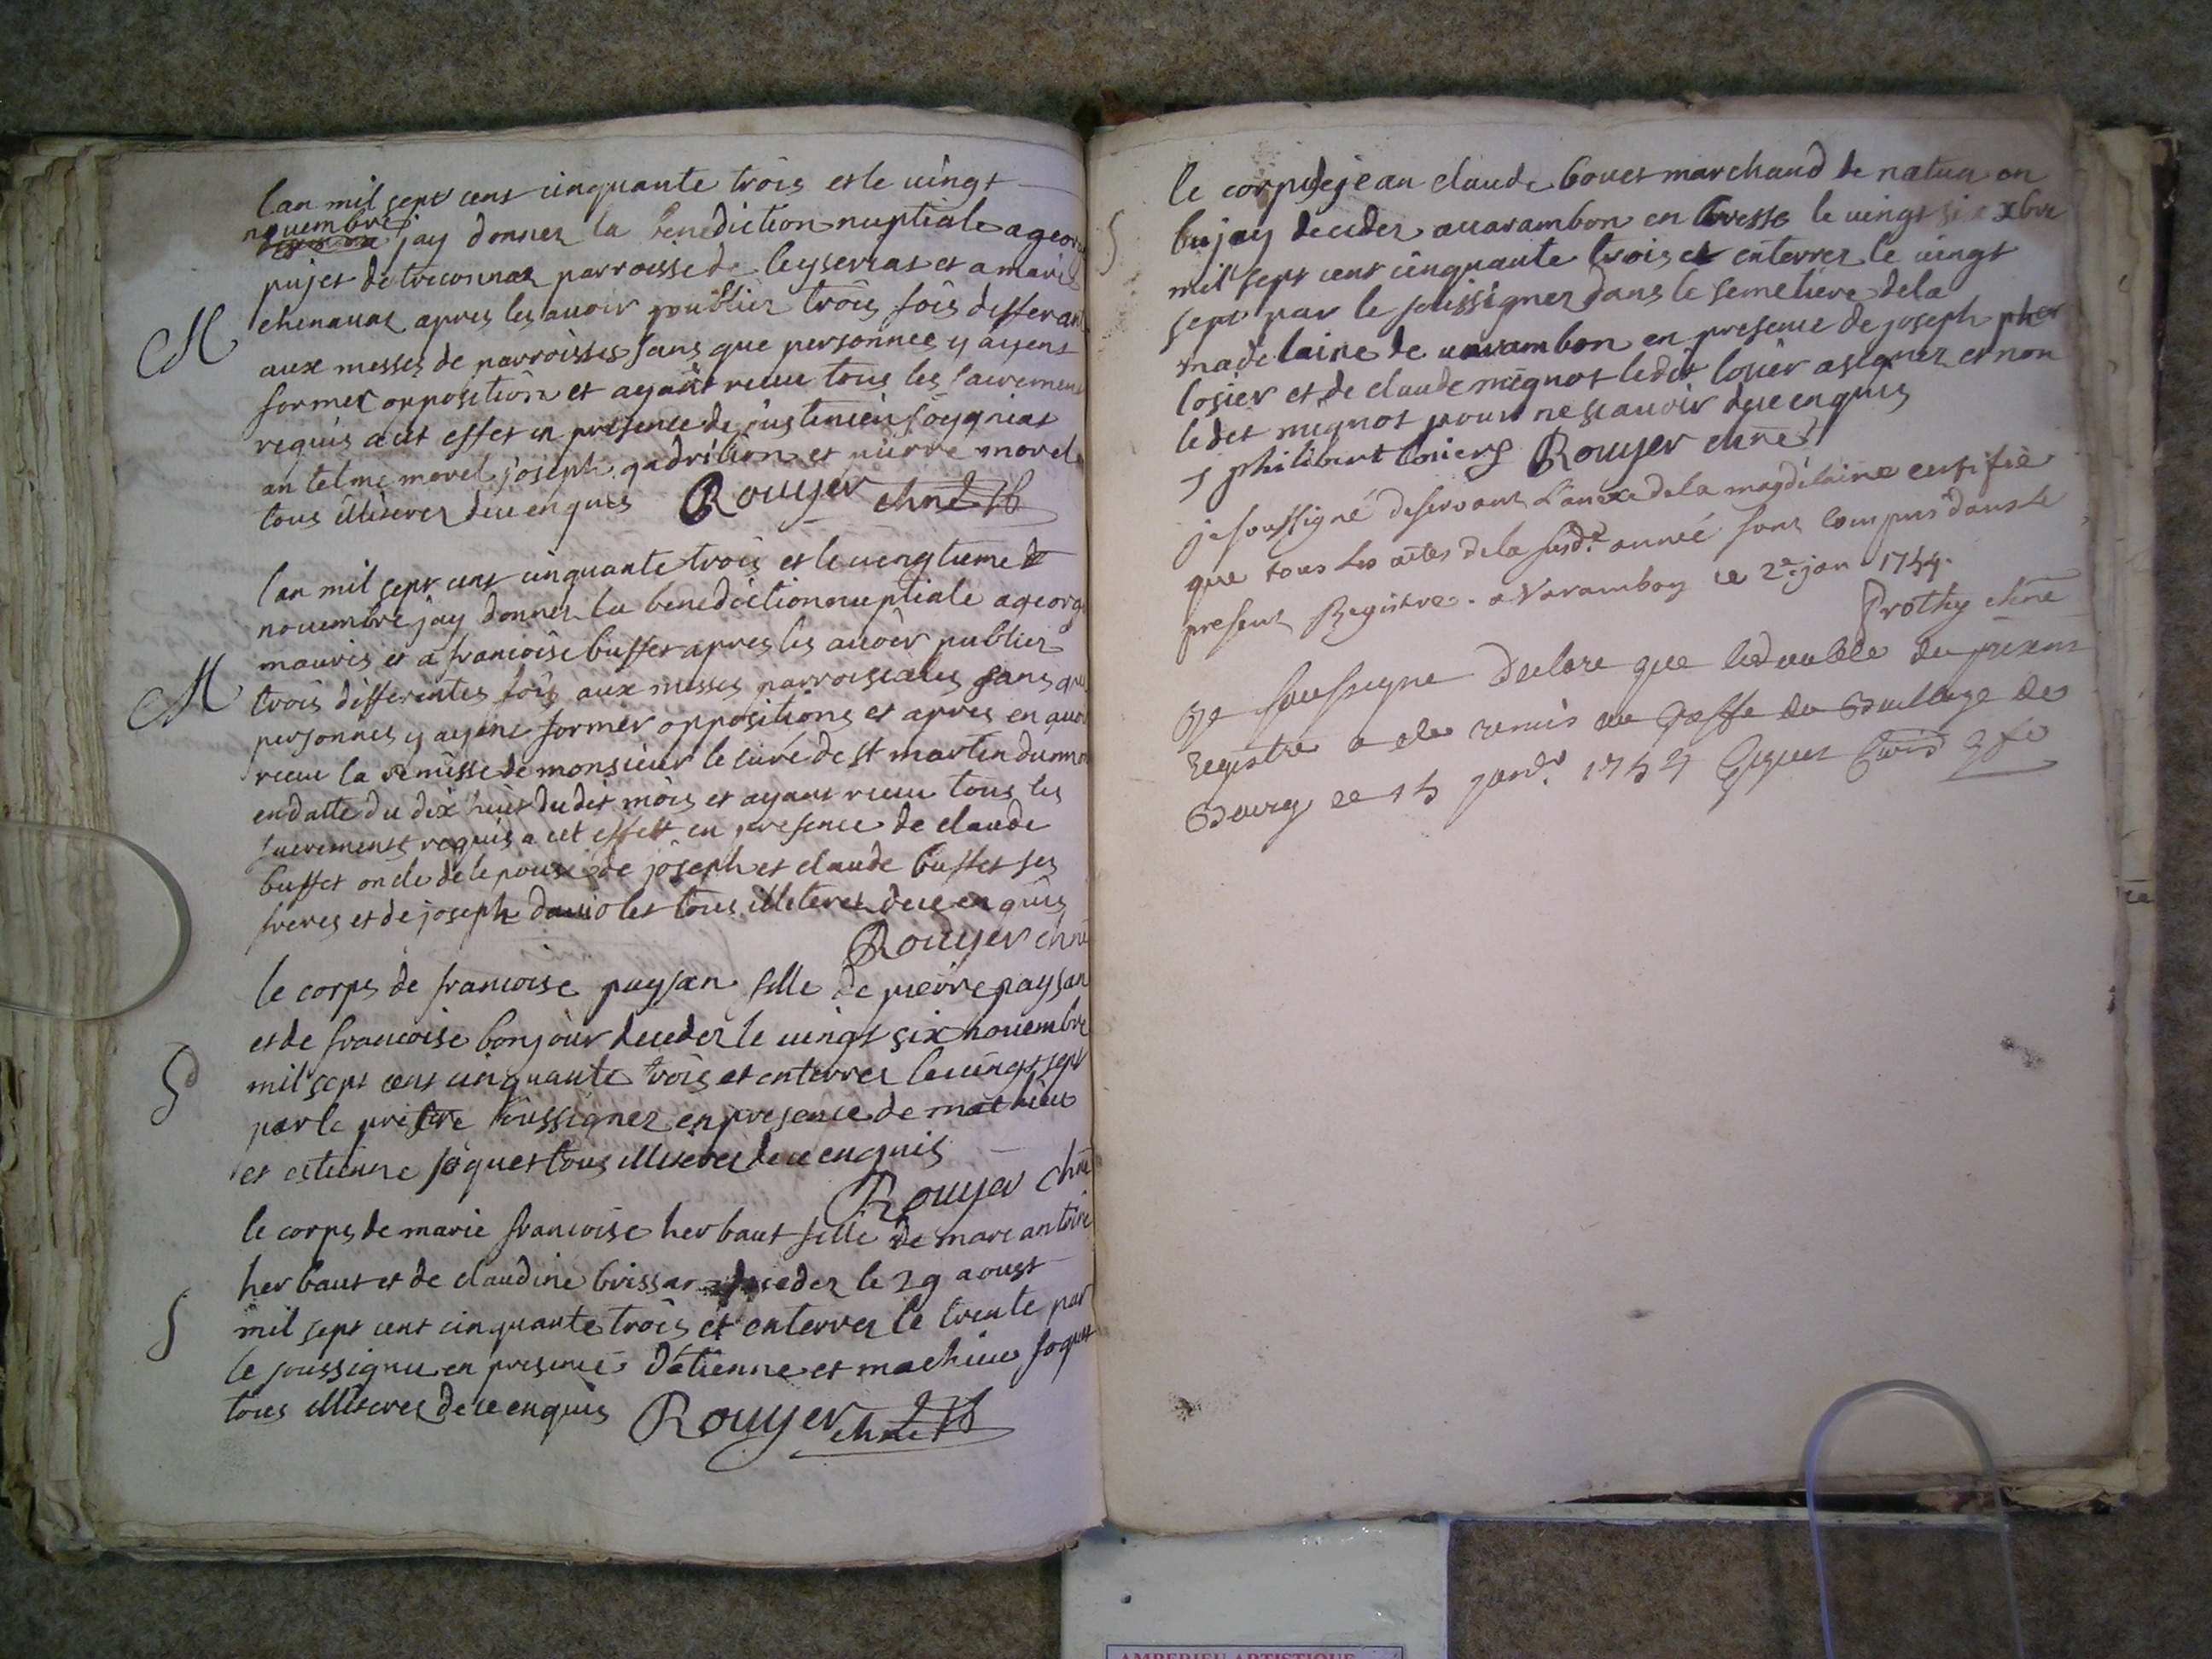 lan mil sept cent cinquante trois et le uingt
nouembre jay donner la benediction nuptiale a george
pujet de treconnas parroisse de leyseriat et a marie
chenauas apres les auoir publier trois fois differant
M
aux messes de parroisses sans que personnes y ayent
former opposition et ayant receu tous les sacrements
requis a cet effet en presence de justinien soygniat
antelme morel joseph et pierre morel
tous illiterez de ce enquis Rouyer chne
lan mil sept cent cinquante trois et le uengtieme
nouembre jay donner la benediction nuptiale a george
mauris et a francoise buffet apres les auoir publier
M
trois differentes fois aux messes parroissiales sans que
personnes y ayent former oppositions et apres en auoir
receu la remisse de monsieur le curé de st martin du mon
en datte du dix huit du dit mois et ayant receu tous les
sacrements requis a cet effet en presence de claude
buffet oncle de lepouse de joseph et claude buffet ses
freres et de joseph tous illiterez de ce enquis
Rouyer chne
le corps de francoise paysan fille de pierre paysan
et de francoise bonjour deceder le uingt six nouembre
S
mil sept cent cinquante trois et enterrer le uingt sept
par le prestre soussigner en presence de mathieu
et estienne soquet tous illiterez de ce enquis
Rouyer chne
le corps de marie francoise herbaut fille de marc antoine
herbaut et de claudine brissar deceder le 29 aoust
S
mil sept cent cinquante trois et enterrer le trente par
le soussigner en presence détienne et mathieu soquet
tous illiterez de ce enquis Rouyer chne
le corps de jean claude bouet marchand de natua en
S
bujay deceder auarambon en bresse le uingt six xbre
mil sept cent cinquante trois et enterrer le uingt
sept par le soussigner dans le semetiere de la
madelaine de uarambon en presence de joseph pher
losier et de claude mignot ledit losier a signer et non
le dit mignot pour ne scauoir de ce enquis
philibert losier Rouyer chne
je soussigné deservant L'anexe de la magdelaine certifie
que tous les actes de la susd.e année sont compris dans le
present Registre. a Varambon ce 2e. jan 1754.
Prothy chne
Je soussigne declare que le double du present
registre a ete remis au Greffe du Bailliage de
Bourg ce 15 janv. 1754